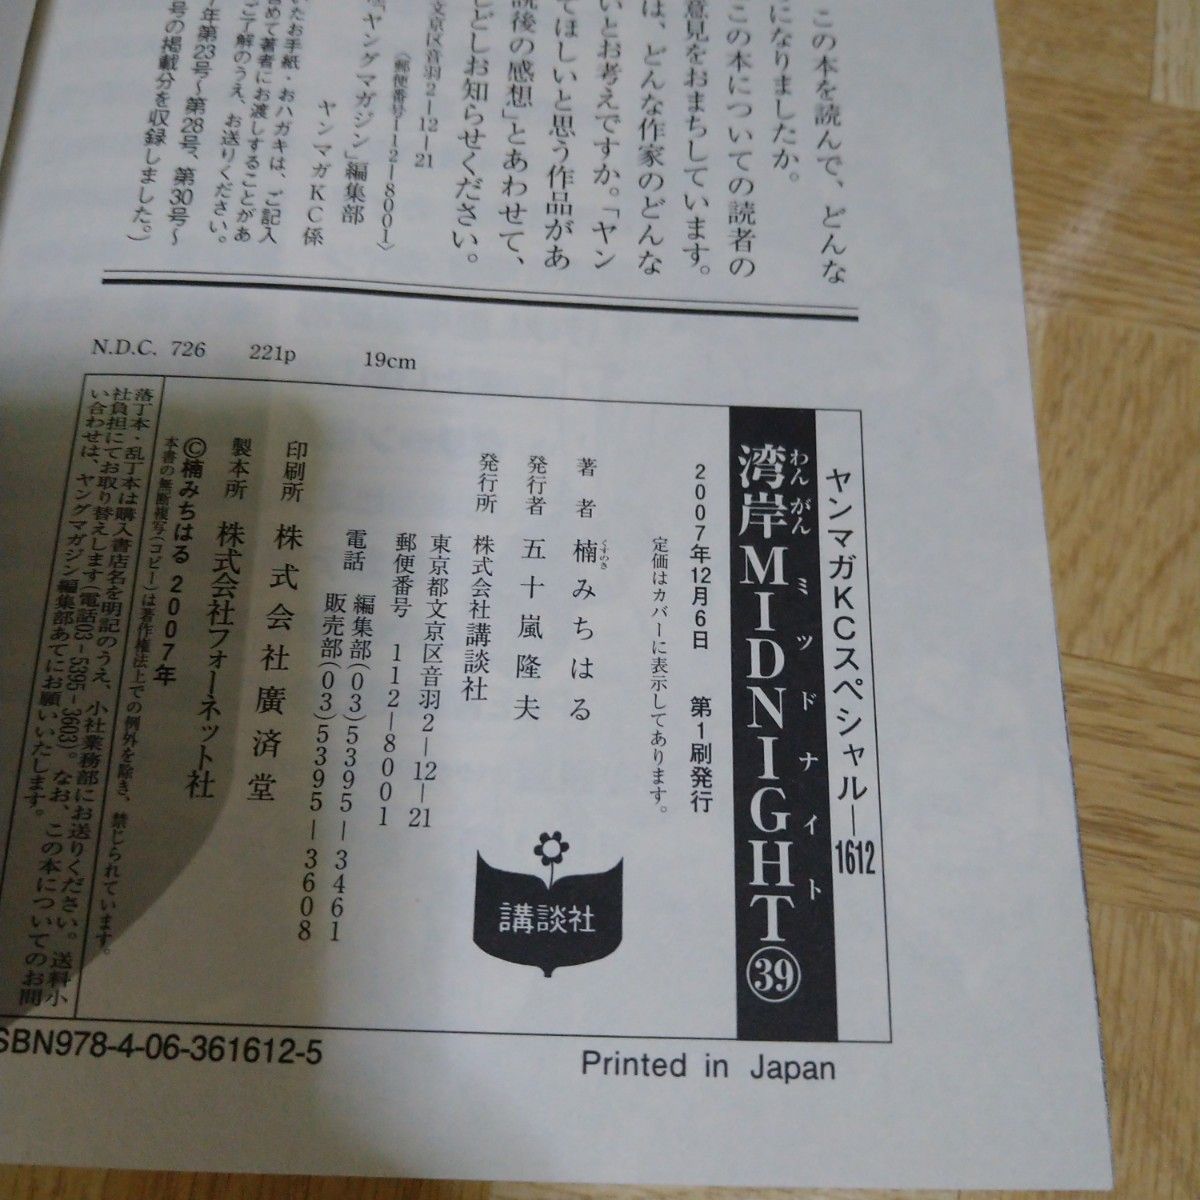 この本を読んで、どんな
になりましたか。
この本についての読者の
意見をおまちしています。
は、どんな作家のどんな
いとお考えですか。「ヤン
てほしいと思う作品があ
読後の感想」とあわせて、
どしお知らせください。
文京区音羽2−12−21
(郵便番号112−8001)
ヤングマガジン」編集部
ヤンマガKC係
いたお手紙・おハガキは、ご記入
含めて著者にお渡しすることがあ
ご了解のうえ、お送りください。
年第23号〜第28号、第30号〜
号の掲載分を収録しました。)
N.D.C. 726 221p 19cm
ヤンマガKCスペシャル−1612
わんがん ミッドナイト
湾岸MIDNIGHT㊴
2007年12月6日 第1刷発行
定価はカバーに表示してあります。
著者 楠みちはる
くすのき
発行者 五十嵐隆夫
発行所 株式会社講談社
東京都文京区音羽2−12−21
郵便番号 112−8001
電話 編集部(03)5395−3461
販売部(03)5395−3608
印刷所 株式会社廣済堂
製本所 株式会社フォーネット社
©楠みちはる 2007年
本書の無断複写(コピー)は著作権法上での例外を除き、禁じられています。
落丁本・乱丁本は購入書店名を明記のうえ、小社業務部にお送りください。送料小
社負担にてお取り替えします(電話03−5395−3603)。なお、この本についてのお問
い合わせは、ヤングマガジン編集部あてにお願いいたします。
講談社
SBN978-4-06-361612-5
Printed in Japan